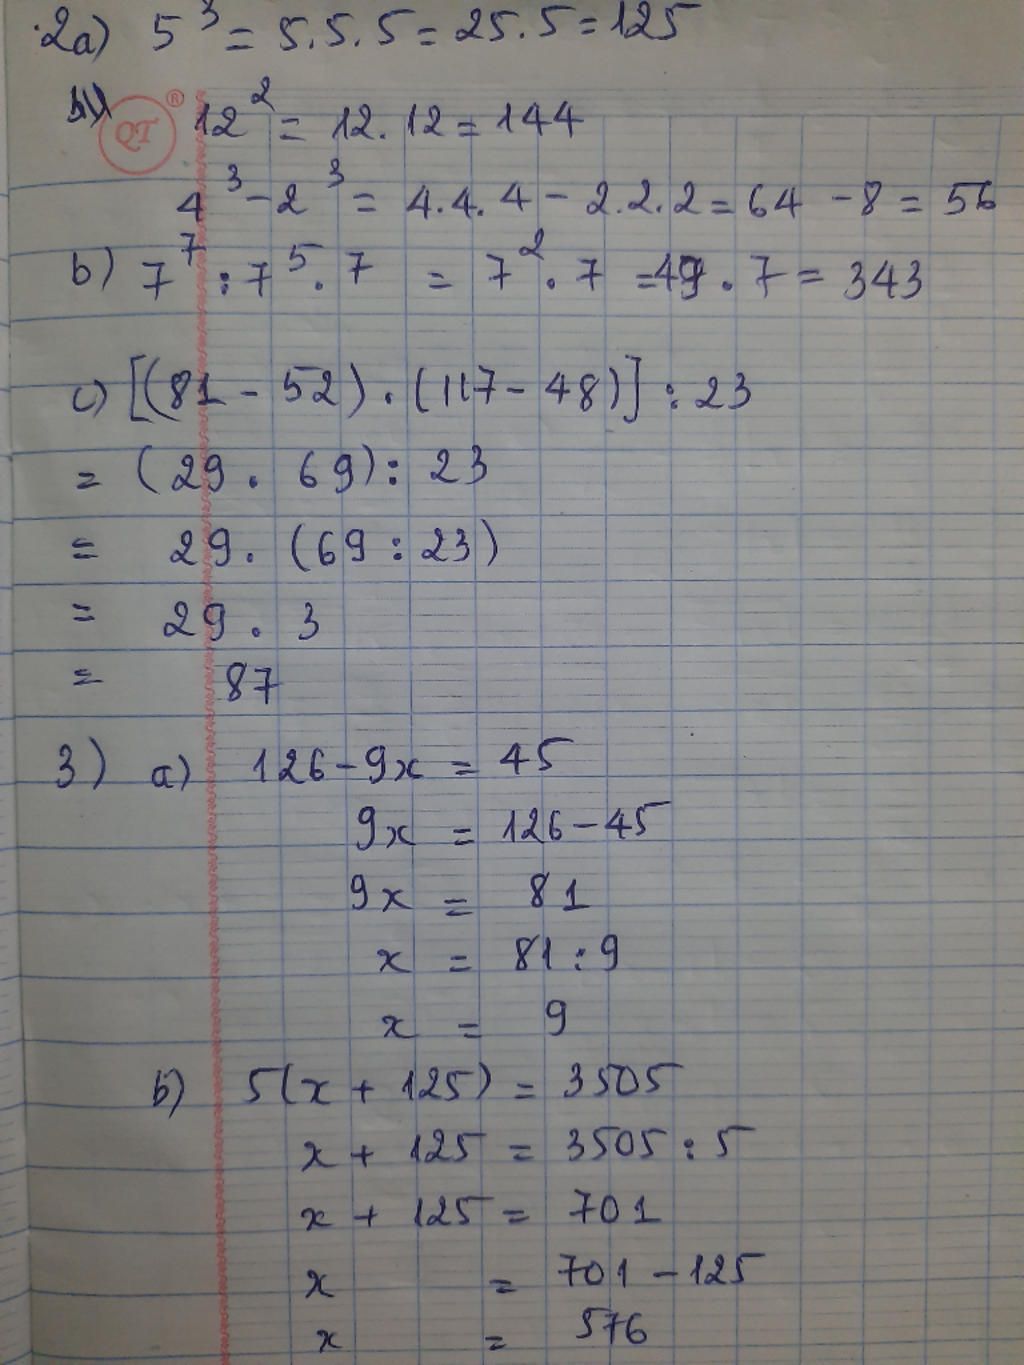 2a) 5³ = 5.5.5 = 25.5 = 125
QT ®
12² = 12.12 = 144
4³ - 2³ = 4.4.4 - 2.2.2 = 64 - 8 = 56
b) 7⁷ : 7⁵ . 7 = 7² . 7 = 49 . 7 = 343
c) [(81 - 52) . (117 - 48)] : 23
= (29 . 69) : 23
= 29 . (69 : 23)
= 29 . 3
= 87
3) a) 126 - 9x = 45
9x = 126 - 45
9x = 81
x = 81 : 9
x = 9
b) 5(x + 125) = 3505
x + 125 = 3505 : 5
x + 125 = 701
x = 701 - 125
x = 576